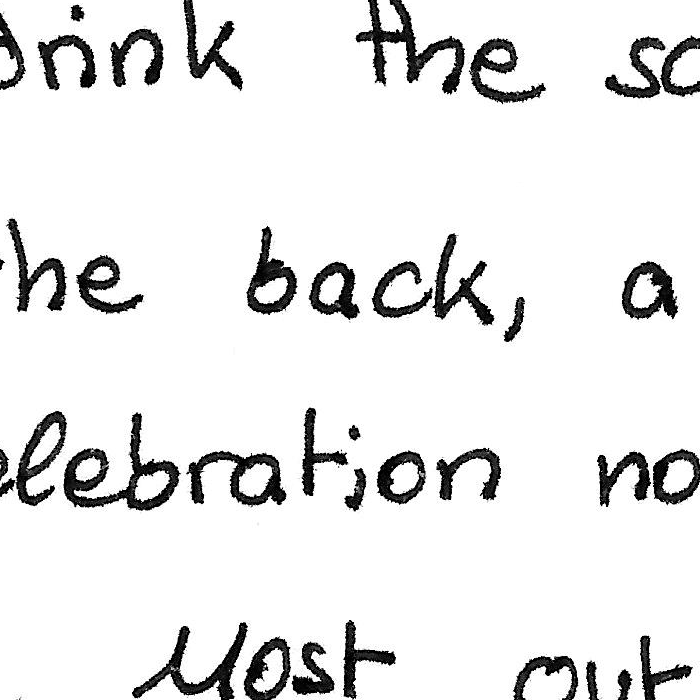 drink the so
he back, a
elebration no
Most out